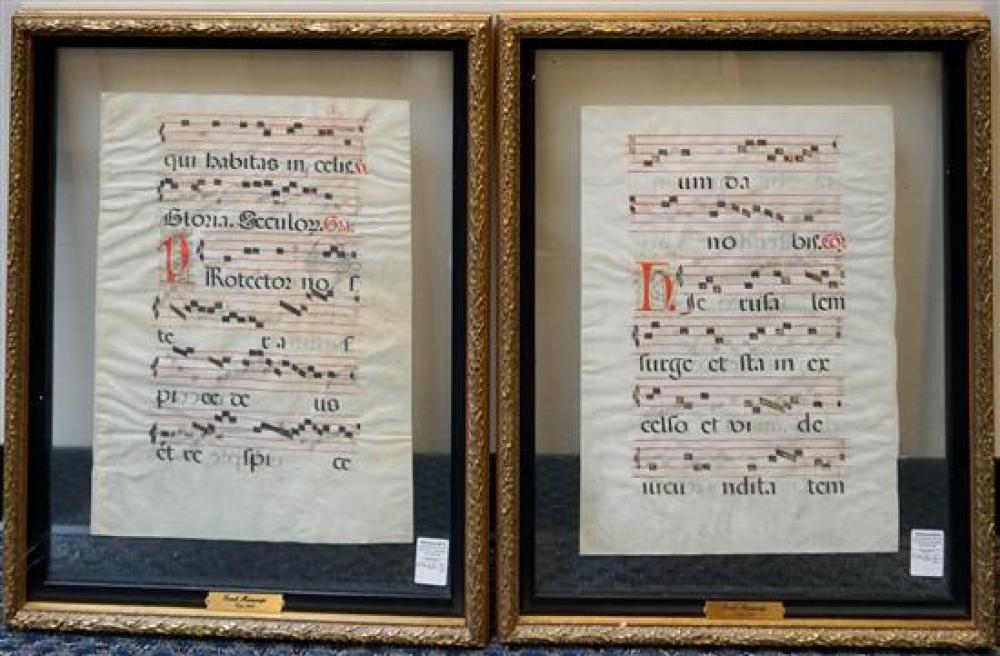 qui habitas in celis.
Gloria. Seculor.
PRotector nos
te ra s
pi ce de us
et re spi ce
um da
no bis. Co.
HJe rusa lem
surge et sta in ex
celso et vi de
iucu ndita tem